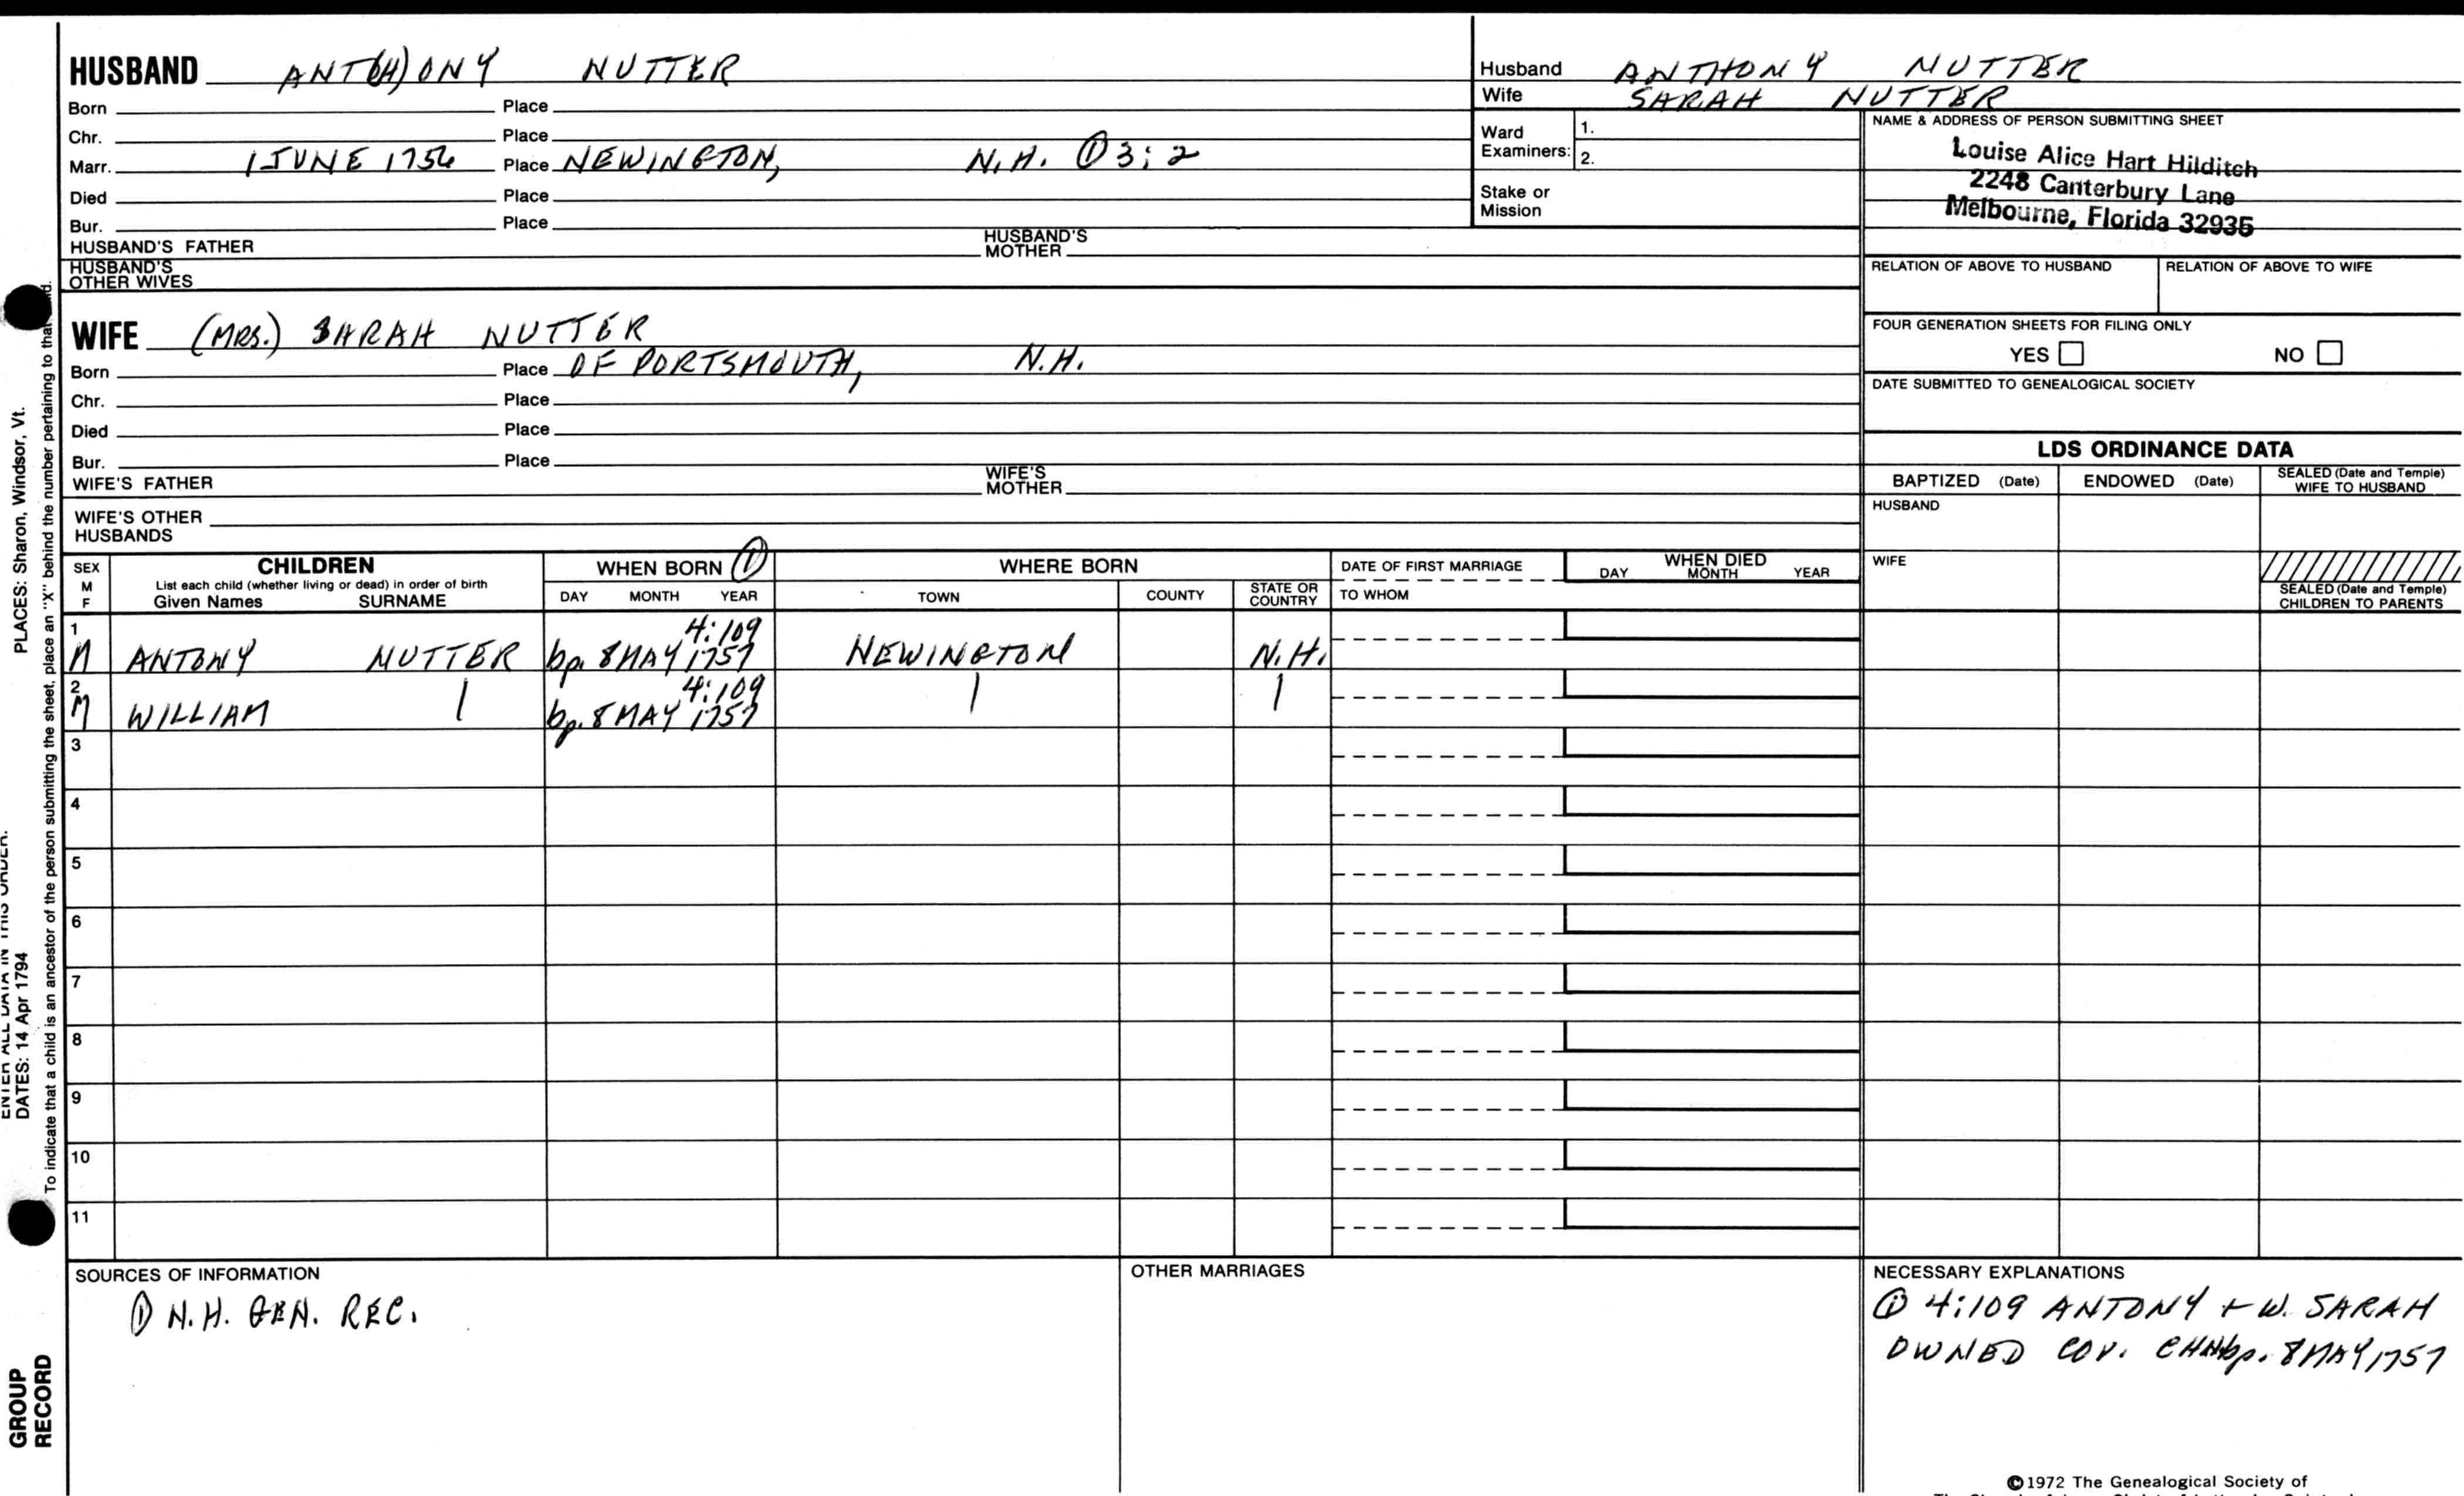 HUSBAND ANT(H)ONY NUTTER
Born Place
Chr. Place
Marr. 1 JUNE 1756 Place NEWINGTON, N.H. ① 3:2
Died Place
Bur. Place
HUSBAND'S FATHER HUSBAND'S MOTHER
HUSBAND'S OTHER WIVES
Husband ANTHONY NUTTER
Wife SARAH NUTTER
Ward Examiners: 1.
2.
Stake or Mission
NAME & ADDRESS OF PERSON SUBMITTING SHEET
Louise Alice Hart Hilditch
2248 Canterbury Lane
Melbourne, Florida 32935
RELATION OF ABOVE TO HUSBAND RELATION OF ABOVE TO WIFE
FOUR GENERATION SHEETS FOR FILING ONLY
YES NO
DATE SUBMITTED TO GENEALOGICAL SOCIETY
WIFE (MRS.) SARAH NUTTER
Born Place OF PORTSMOUTH, N.H.
Chr. Place
Died Place
Bur. Place
WIFE'S FATHER WIFE'S MOTHER
WIFE'S OTHER HUSBANDS
LDS ORDINANCE DATA
BAPTIZED (Date) ENDOWED (Date) SEALED (Date and Temple) WIFE TO HUSBAND
HUSBAND
WIFE
SEALED (Date and Temple) CHILDREN TO PARENTS
SEX M F
CHILDREN
List each child (whether living or dead) in order of birth
Given Names SURNAME
WHEN BORN ①
DAY MONTH YEAR
WHERE BORN
TOWN COUNTY STATE OR COUNTRY
DATE OF FIRST MARRIAGE
TO WHOM
WHEN DIED
DAY MONTH YEAR
4:109
1 M ANTONY NUTTER bp. 8 MAY 1757 NEWINGTON N.H.
4:109
2 M WILLIAM | bp. 8 MAY 1757 | |
3
4
5
6
7
8
9
10
11
SOURCES OF INFORMATION
① N.H. GEN. REC.
OTHER MARRIAGES
NECESSARY EXPLANATIONS
① 4:109 ANTONY + W. SARAH
OWNED COV. CHN bp. 8 MAY 1757
©1972 The Genealogical Society of
PLACES: Sharon, Windsor, Vt.
ENTER ALL DATA IN THIS ORDER.
DATES: 14 Apr 1794
To indicate that a child is an ancestor of the person submitting the sheet, place an "X" behind the number pertaining to that
GROUP
RECORD